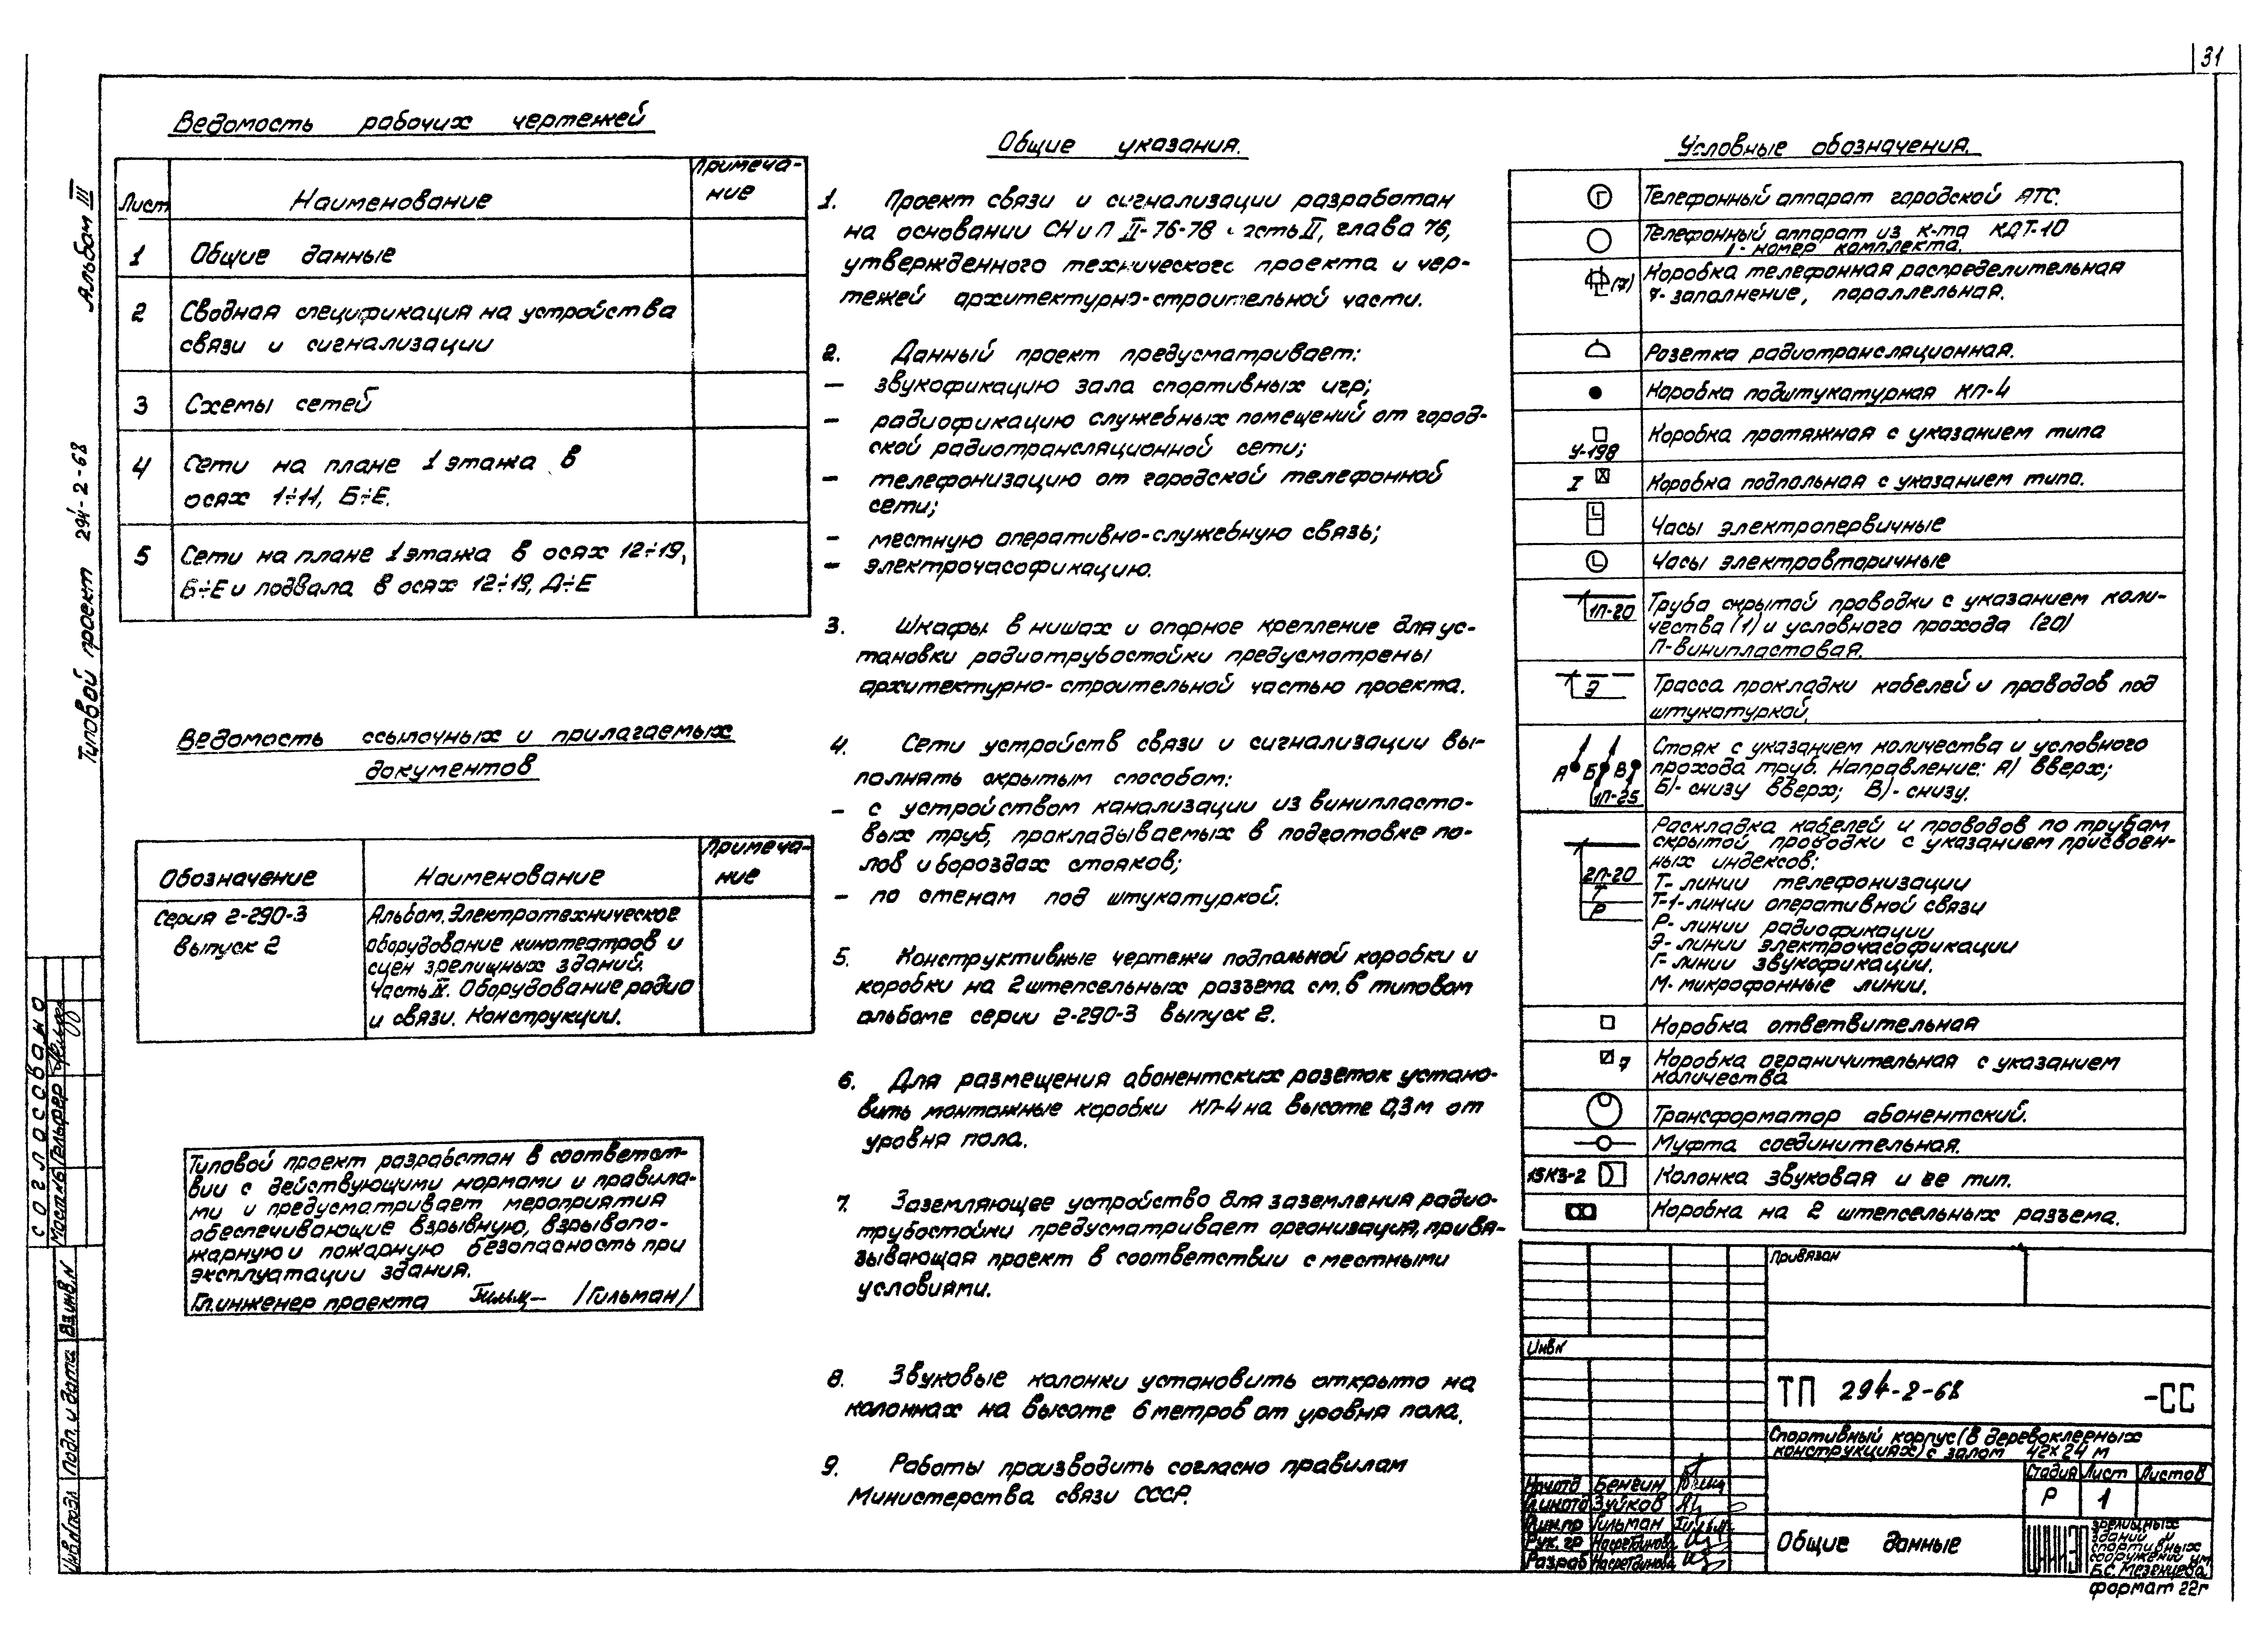 31
Альбом III
Типовой проект 294-2-68
Ведомость рабочих чертежей
Лист
Наименование
Примеча-
ние
1
Общие данные
2
Сводная спецификация на устройства
связи и сигнализации
3
Схемы сетей
4
Сети на плане 1 этажа в
осях 1÷11, Б÷Е.
5
Сети на плане 1 этажа в осях 12÷19,
Б÷Е и подвала в осях 12÷19, Д÷Е
Ведомость ссылочных и прилагаемых
документов
Обозначение
Наименование
Примеча-
ние
Серия 2-290-3
выпуск 2
Альбом. Электротехническое
оборудование кинотеатров и
сцен зрелищных зданий.
Часть IV. Оборудование радио
и связи. Конструкции.
Типовой проект разработан в соответст-
вии с действующими нормами и правила-
ми и предусматривает мероприятия
обеспечивающие взрывную, взрывопо-
жарную и пожарную безопасность при
эксплуатации здания.
Гл. инженер проекта /Гильман/
Общие указания.
1. Проект связи и сигнализации разработан
на основании СНиП II-76-78 часть II, глава 76,
утвержденного технического проекта и чер-
тежей архитектурно-строительной части.
2. Данный проект предусматривает:
- звукофикацию зала спортивных игр;
- радиофикацию служебных помещений от город-
ской радиотрансляционной сети;
- телефонизацию от городской телефонной
сети;
- местную оперативно-служебную связь;
- электрочасофикацию.
3. Шкафы в нишах и опорное крепление для ус-
тановки радиотрубостойки предусмотрены
архитектурно-строительной частью проекта.
4. Сети устройств связи и сигнализации вы-
полнять скрытым способом:
- с устройством канализации из винипласто-
вых труб, прокладываемых в подготовке по-
лов и бороздах стояков;
- по стенам под штукатуркой.
5. Конструктивные чертежи подпольной коробки и
коробки на 2 штепсельных разъема см. в типовом
альбоме серии 2-290-3 выпуск 2.
6. Для размещения абонентских розеток устано-
вить монтажные коробки КП-4 на высоте 0,3м от
уровня пола.
7. Заземляющее устройство для заземления радио-
трубостойки предусматривает организация, привя-
зывающая проект в соответствии с местными
условиями.
8. Звуковые колонки установить открыто на
колоннах на высоте 6 метров от уровня пола.
9. Работы производить согласно правилам
Министерства связи СССР.
Условные обозначения.
Г
Телефонный аппарат городской АТС.
Телефонный аппарат из к-та КДТ-10
1- номер комплекта.
(7)
Коробка телефонная распределительная
7- заполнение, параллельная.
Розетка радиотрансляционная.
Коробка подштукатурная КП-4
У-198
Коробка протяжная с указанием типа
I
Коробка подпольная с указанием типа.
Часы электропервичные
Часы электровторичные
1П-20
Труба скрытой проводки с указанием коли-
чества (1) и условного прохода (20)
П-винипластовая.
Э
Трасса прокладки кабелей и проводов под
штукатуркой.
А Б В
1П-25
Стояк с указанием количества и условного
прохода труб. Направление: А) вверх;
Б)- снизу вверх; В)- снизу.
2П-20
Т
Р
Раскладка кабелей и проводов по трубам
скрытой проводки с указанием присвоен-
ных индексов:
Т- линии телефонизации
Т-1-линии оперативной связи
Р- линии радиофикации
Э- линии электрочасофикации
Г- линии звукофикации.
М- микрофонные линии.
Коробка ответвительная
7
Коробка ограничительная с указанием
количества
Трансформатор абонентский.
Муфта соединительная.
15КЗ-2
Колонка звуковая и ее тип.
Коробка на 2 штепсельных разъема.
Привязан
Инв.N
ТП 294-2-68 -СС
Спортивный корпус (в деревоклееных
конструкциях) с залом 42×24 м
Стадия Лист Листов
Р 1
Нач.отд Бенгин
Гл.инотд Зуйков
Гл.инж.пр Гильман
Рук. гр Насретдинова
Разраб Насретдинова
Общие данные
ЦНИИЭП
зрелищных
зданий и
спортивных
сооружений им.
Б.С. Мезенцева
формат 22г
Согласовано
Мосгань Гельфер
Вз.инв.N
Подп. и дата
Инв.N подл